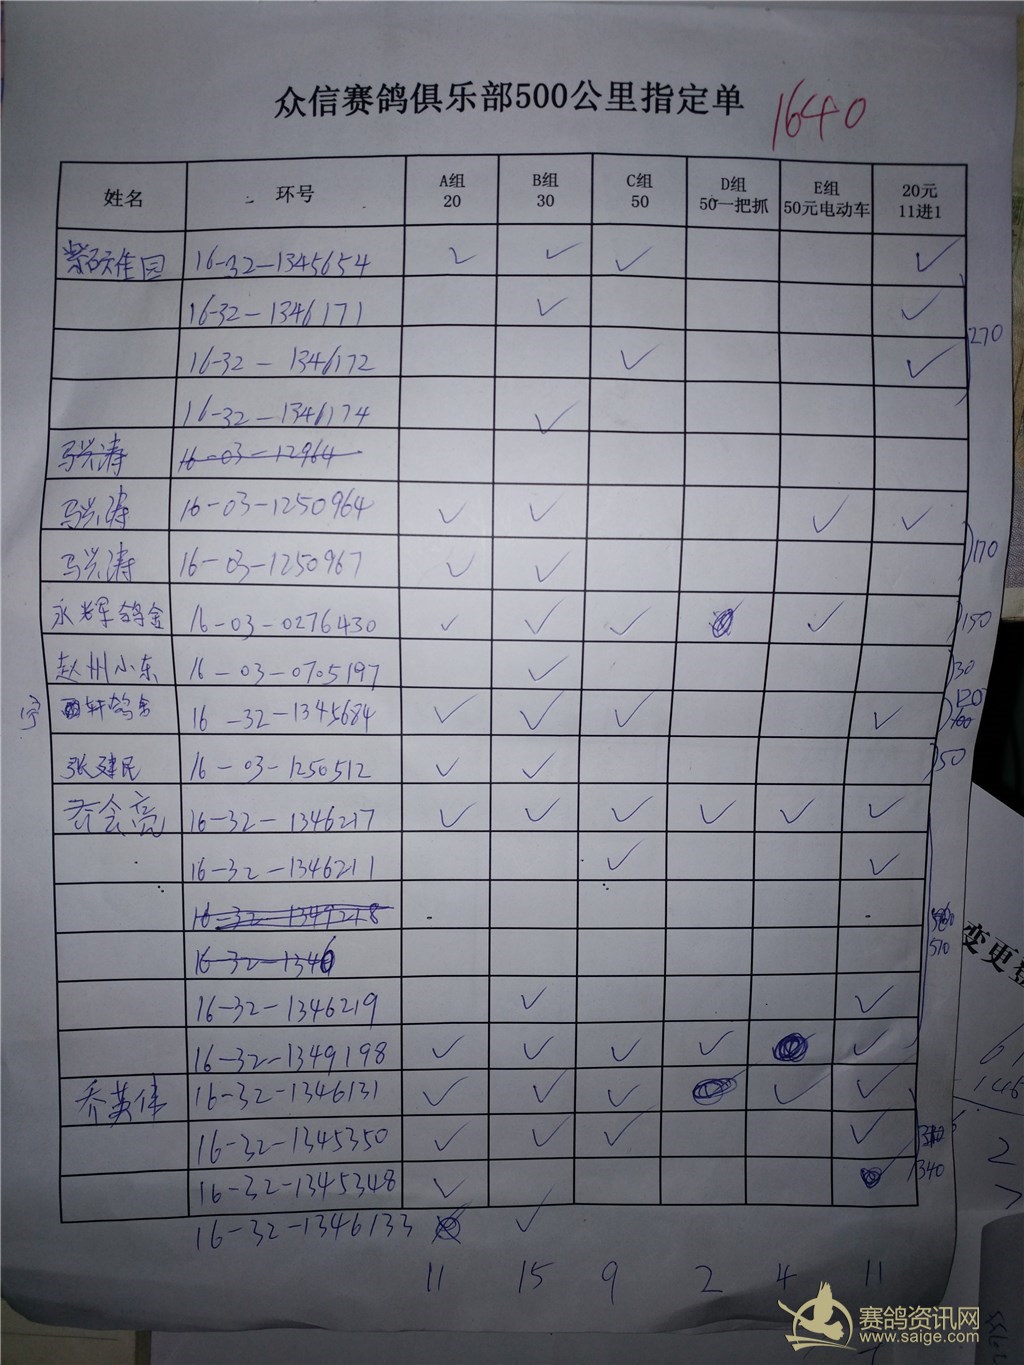 众信赛鸽俱乐部500公里指定单 1640
姓名 环号 A组 20 B组 30 C组 50 D组 50一把抓 E组 50元电动车 20元 11进1
紫砡佳园 16-32-1345654 ✓ ✓ ✓ ✓
16-32-1346171 ✓ ✓ 270
16-32-1346172 ✓ ✓
16-32-1346174 ✓
马兴涛 16-03-12964
马兴涛 16-03-1250964 ✓ ✓ ✓ ✓
马兴涛 16-03-1250967 ✓ ✓ 170
永辉鸽舍 16-03-0276430 ✓ ✓ ✓ ✓ 150
赵州小东 16-03-0705197 ✓ 30
宁 轩鸽舍 16-32-1345684 ✓ ✓ ✓ ✓ 120
张建民 16-03-1250512 ✓ ✓ 50
乔会亮 16-32-1346217 ✓ ✓ ✓ ✓ ✓ ✓
16-32-1346211 ✓ ✓
16-32-1349218
16-32-1346 510
16-32-1346219 ✓ ✓
16-32-1349198 ✓ ✓ ✓ ✓ ✓
乔英伟 16-32-1346131 ✓ ✓ ✓ ✓ ✓
16-32-1345350 ✓ ✓ ✓ ✓
16-32-1345348 ✓ 340
16-32-1346133 ✓
11 15 9 2 4 11
变更登
2
赛鸽资讯网
www.saige.com